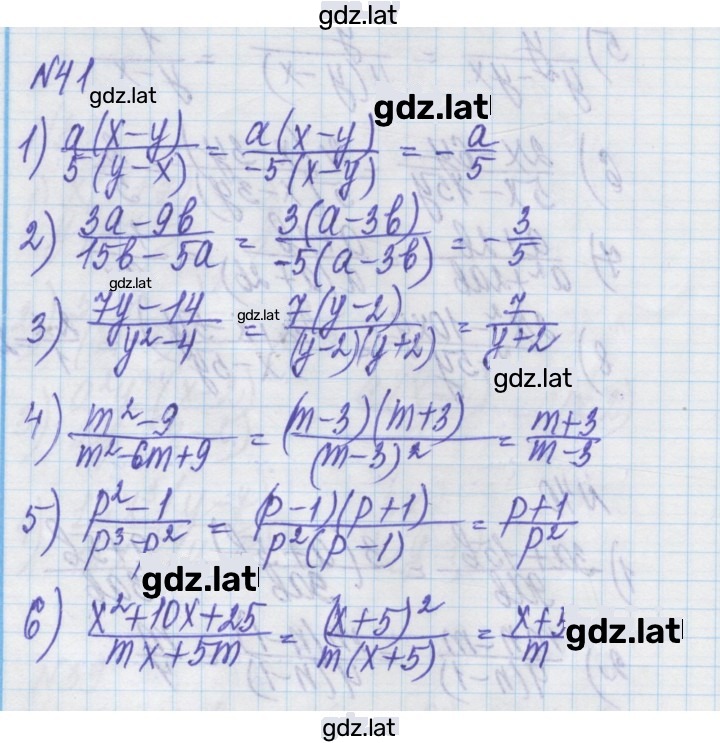 gdz.lat
№41
gdz.lat
gdz.lat
1) a(x-y)/5(y-x) = a(x-y)/-5(x-y) = -a/5
2) 3a-9b/15b-5a = 3(a-3b)/-5(a-3b) = -3/5
gdz.lat
gdz.lat
3) 7y-14/y²-4 = 7(y-2)/(y-2)(y+2) = 7/y+2
gdz.lat
4) m²-9/m²-6m+9 = (m-3)(m+3)/(m-3)² = m+3/m-3
5) p²-1/p³-p² = (p-1)(p+1)/p²(p-1) = p+1/p²
gdz.lat
6) x²+10x+25/mx+5m = (x+5)²/m(x+5) = x+5/m
gdz.lat
gdz.lat